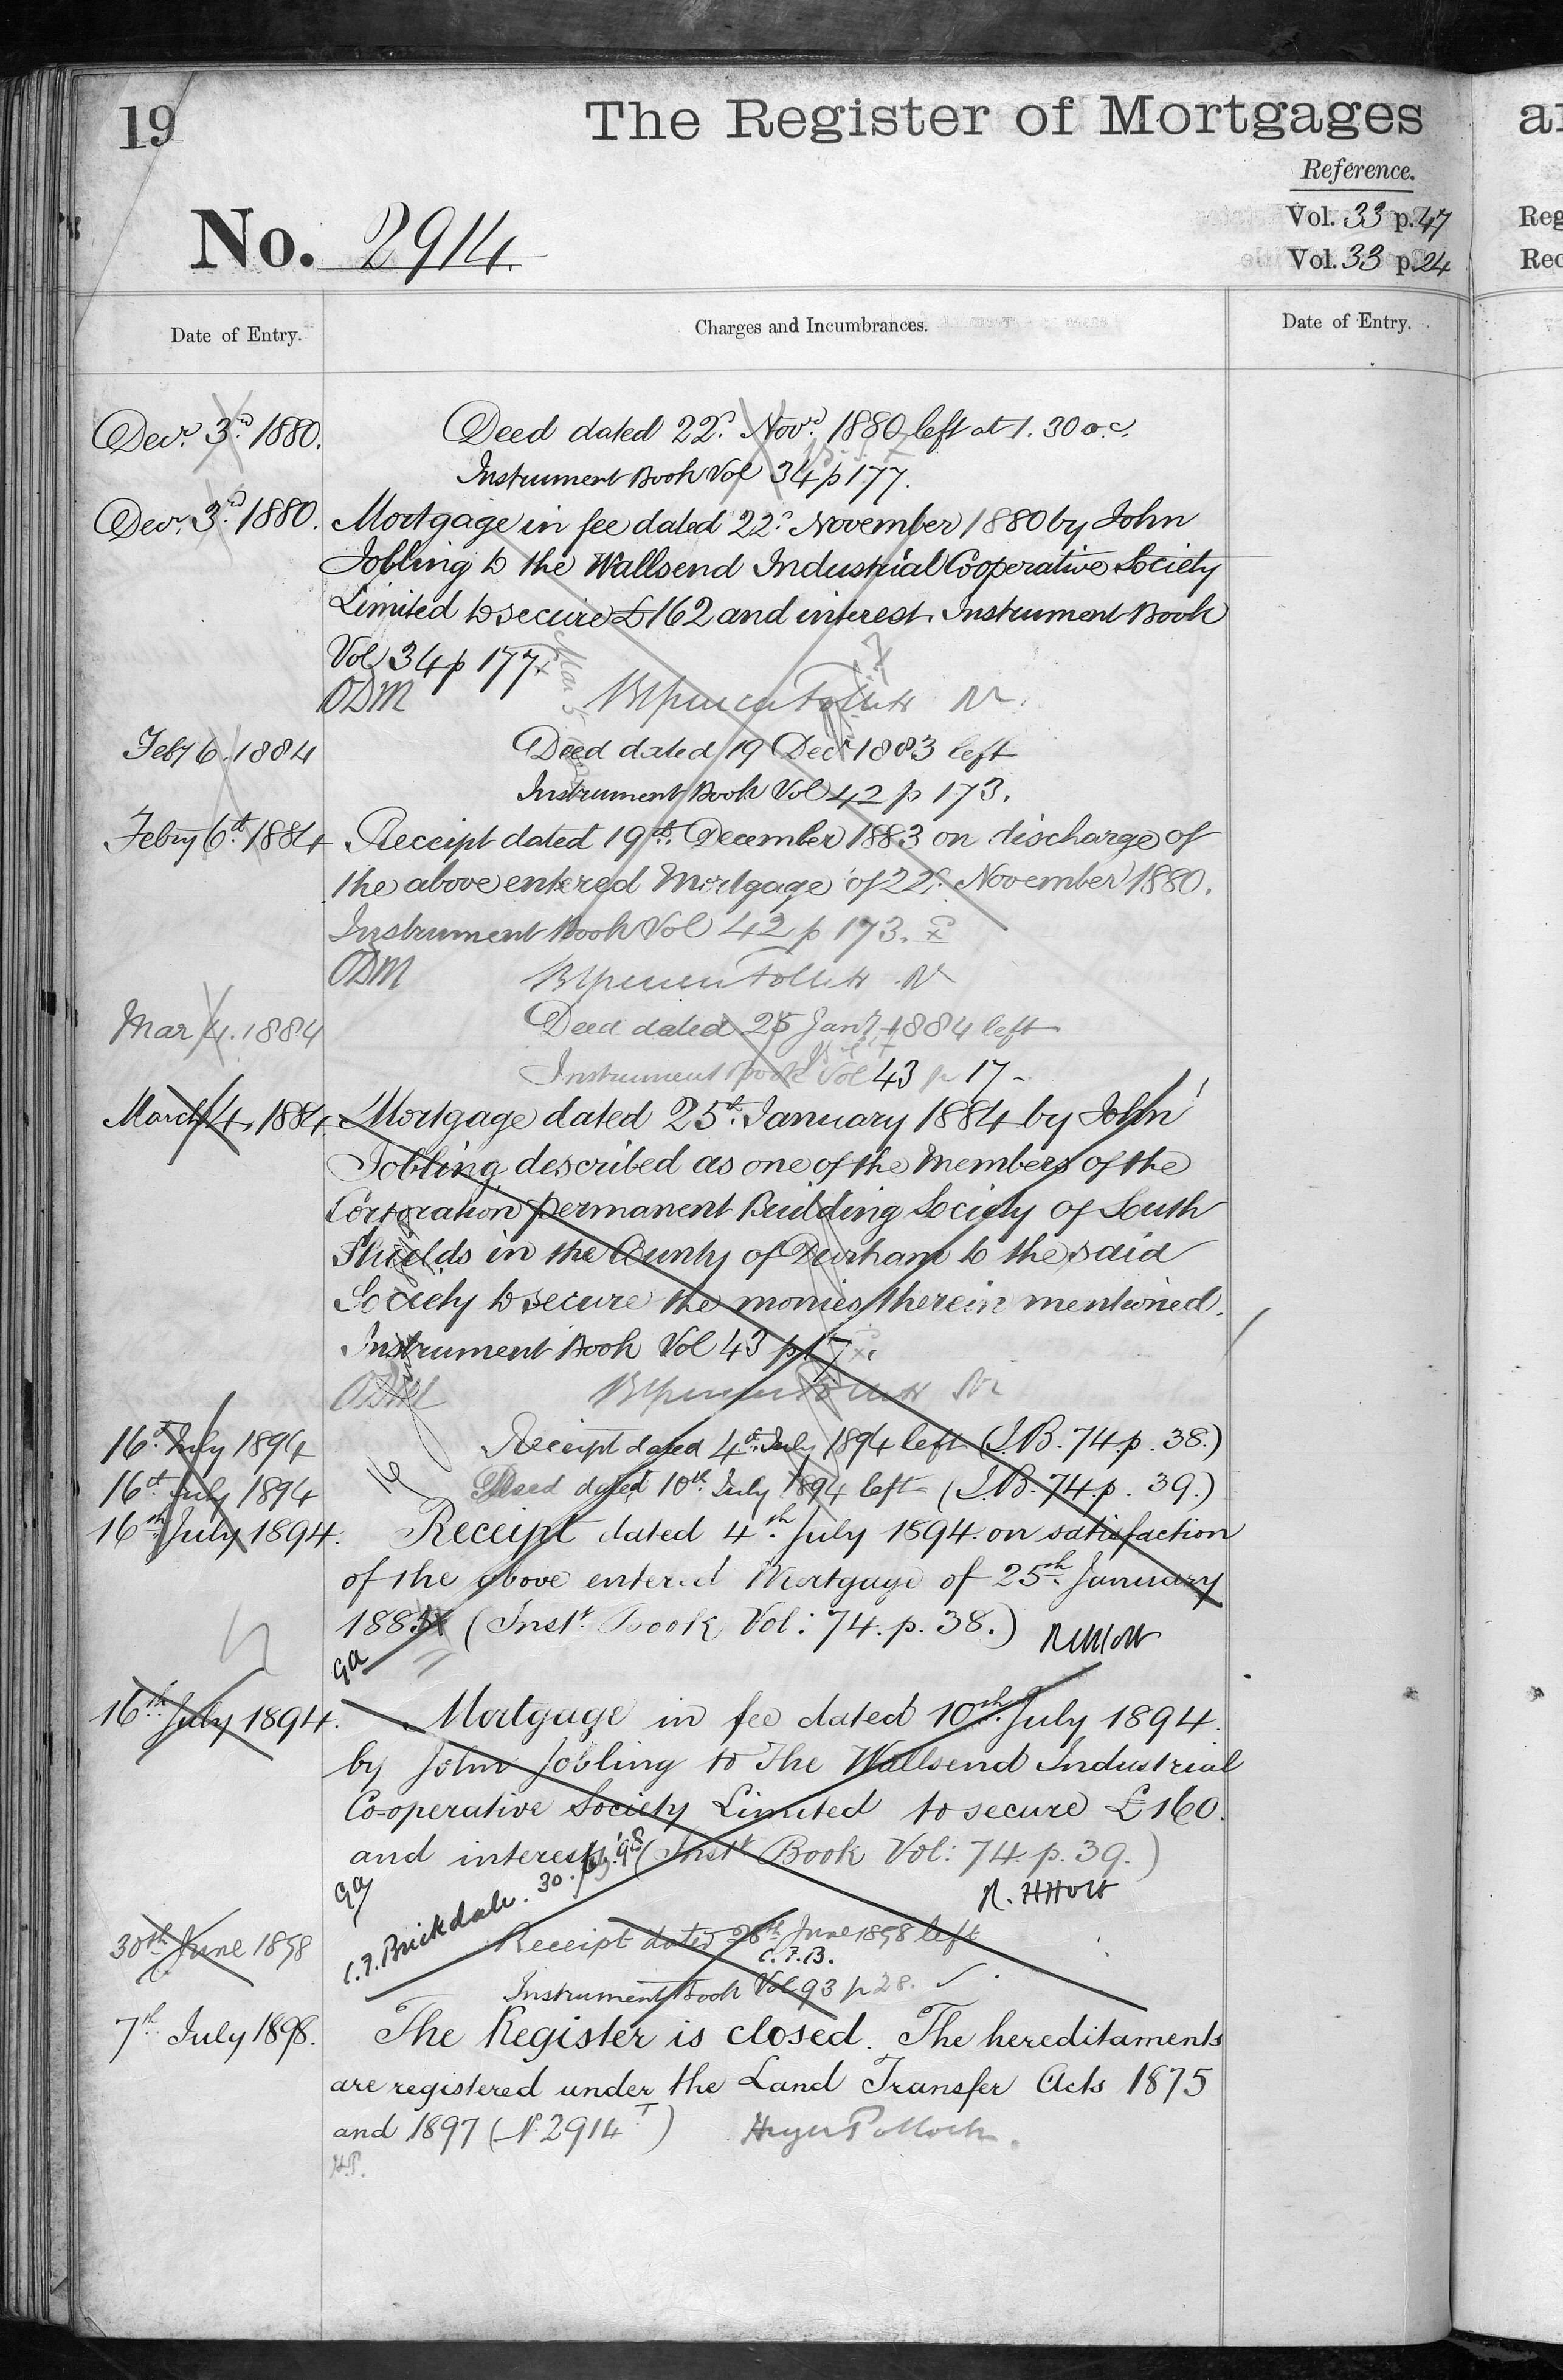 19
The Register of Mortgages
Reference.
No. 2914.
Vol. 33 p. 47
Vol. 33 p. 24
Reg
Rec
Date of Entry.
Charges and Incumbrances.
Date of Entry.
Decr. 3rd 1880. Deed dated 22d. Novr. 1880 left at 1.30 o.c.
Instrument Book Vol 34 p 177.
Decr. 3rd 1880. Mortgage in fee dated 22d. November 1880 by John
Jobling to the Wallsend Industrial Cooperative Society
Limited to secure £162 and interest. Instrument Book
Vol 34 p 177
ODM
Feby 6. 1884 Deed dated 19 Decr 1883 left
Instrument Book Vol 42 p 173.
Febry 6th. 1884 Receipt dated 19th. December 1883 on discharge of
the above entered Mortgage of 22d. November 1880.
Instrument Book Vol 42 p 173.
ODM
Mar 4. 1884 Deed dated 25 Jany 1884 left
Instrument Book Vol 43 p 17 -
March 4, 1884. Mortgage dated 25th. January 1884 by John
Jobling described as one of the Members of the
Corporation permanent Building Society of South
Shields in the County of Durham to the said
Society to secure the monies therein mentioned.
Instrument Book Vol 43 p 17
ODM
16th July 1894 Receipt dated 4th. July 1894 left (I.B. 74. p. 38.)
16th July 1894 Deed dated 10th. July 1894 left (I.B. 74. p. 39.)
16th July 1894. Receipt dated 4th. July 1894. on satisfaction
of the above entered Mortgage of 25th. January
(Inst. Book Vol: 74. p. 38.)
16th July 1894. Mortgage in fee dated 10th. July 1894.
by John Jobling to The Wallsend Industrial
Co-operative Society Limited to secure £160.
and interest. (Inst. Book Vol: 74. p. 39.)
R. H Holt
C.F. Brickdale. 30.
30th June 1898 Receipt dated 28th June 1898 left
C.F.B.
Instrument Book Vol 93 p 28.
7th July 1898. The Register is closed. The hereditaments
are registered under the Land Transfer Acts 1875
and 1897 (N. 2914 T)
H.P.